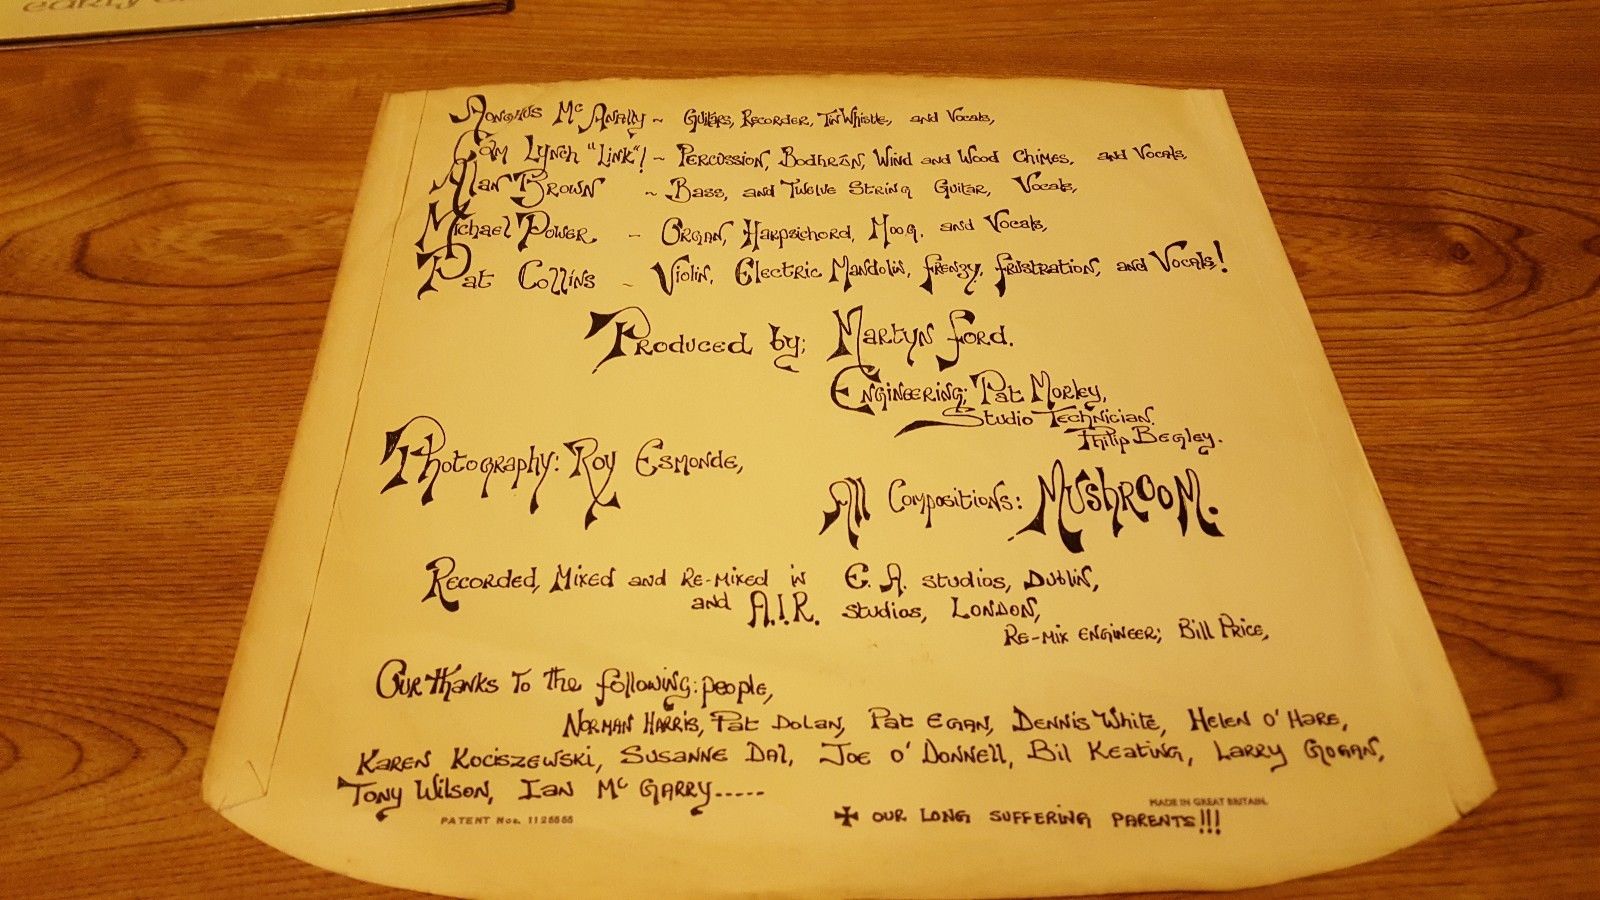 early
Aonghus Mc Anally ~ Guitars, Recorder, Tin Whistle, and Vocals,
Colm Lynch "Link"! ~ Percussion, Bodhrán, Wind and Wood Chimes, and Vocals,
Alan Brown ~ Bass, and Twelve String Guitar, Vocals,
Michael Power, ~ Organ, Harpsichord, Moog, and Vocals,
Pat Collins ~ Violin, Electric Mandolin, frenzy, frustration, and Vocals!
Produced by; Martyn Ford.
Engineering; Pat Morley,
Studio Technician.
Philip Begley.
Photography: Roy Esmonde,
All Compositions: Mushroom.
Recorded, Mixed and Re-mixed in E. A. studios, Dublin,
and A.I.R. studios, London,
Re-mix engineer; Bill Price,
Our thanks to the following: people,
Norman Harris, Pat Dolan, Pat Egan, Dennis White, Helen O' Hare,
Karen Kociszewski, Susanne Dal, Joe O' Donnell, Bil Keating, Larry Gogan,
Tony Wilson, Ian Mc Garry-----
MADE IN GREAT BRITAIN.
PATENT Nos.
✠ our long suffering parents!!!